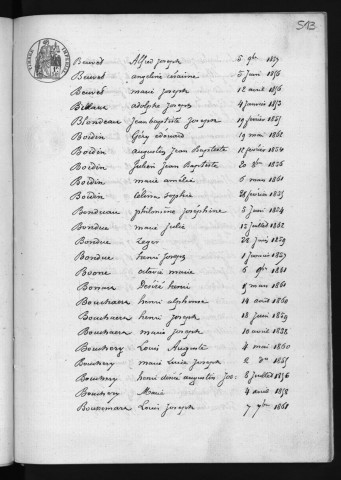 513
Beuvet Alfred joseph 6 9bre 1857
Beuvet angeline césarine 5 juin 1856
Beuvet marie joseph 12 avril 1856
adolphe joseph 4 janvier 1853
Blondeau jean baptiste joseph 19 février 1825
Boidin Géry édouard 19 mai 1862
Boidin augustin Jean Baptiste 18 février 1854
Boidin Julien Jean Baptiste 1826
Boidin marie amélie 6 mars 1861
Boidin sophie 28 février 1825
Bondueau philomène joséphine 5 juin 1824
Bondue marie julie 13 juillet 1862
Bondue Leger 22 juin 1829
Bondue henri joseph 1 janvier 1827
Boone marie 6 9bre 1861
Désiré henri 15 mars 1861
Bouchaert henri alphonse 14 avril 1860
Bouchaert henri joseph 18 juin 1829
Bouchaert marie joseph 10 avril 1828
Bouchery Louis Auguste 4 mai 1860
Bouchery marie Luce joseph 2 1825
Bouchery henri désiré augustin Jos: 8 juillet 1856
Bouchery Marie 4 avril 1858
Boutemare Louis joseph 7 7bre 1861